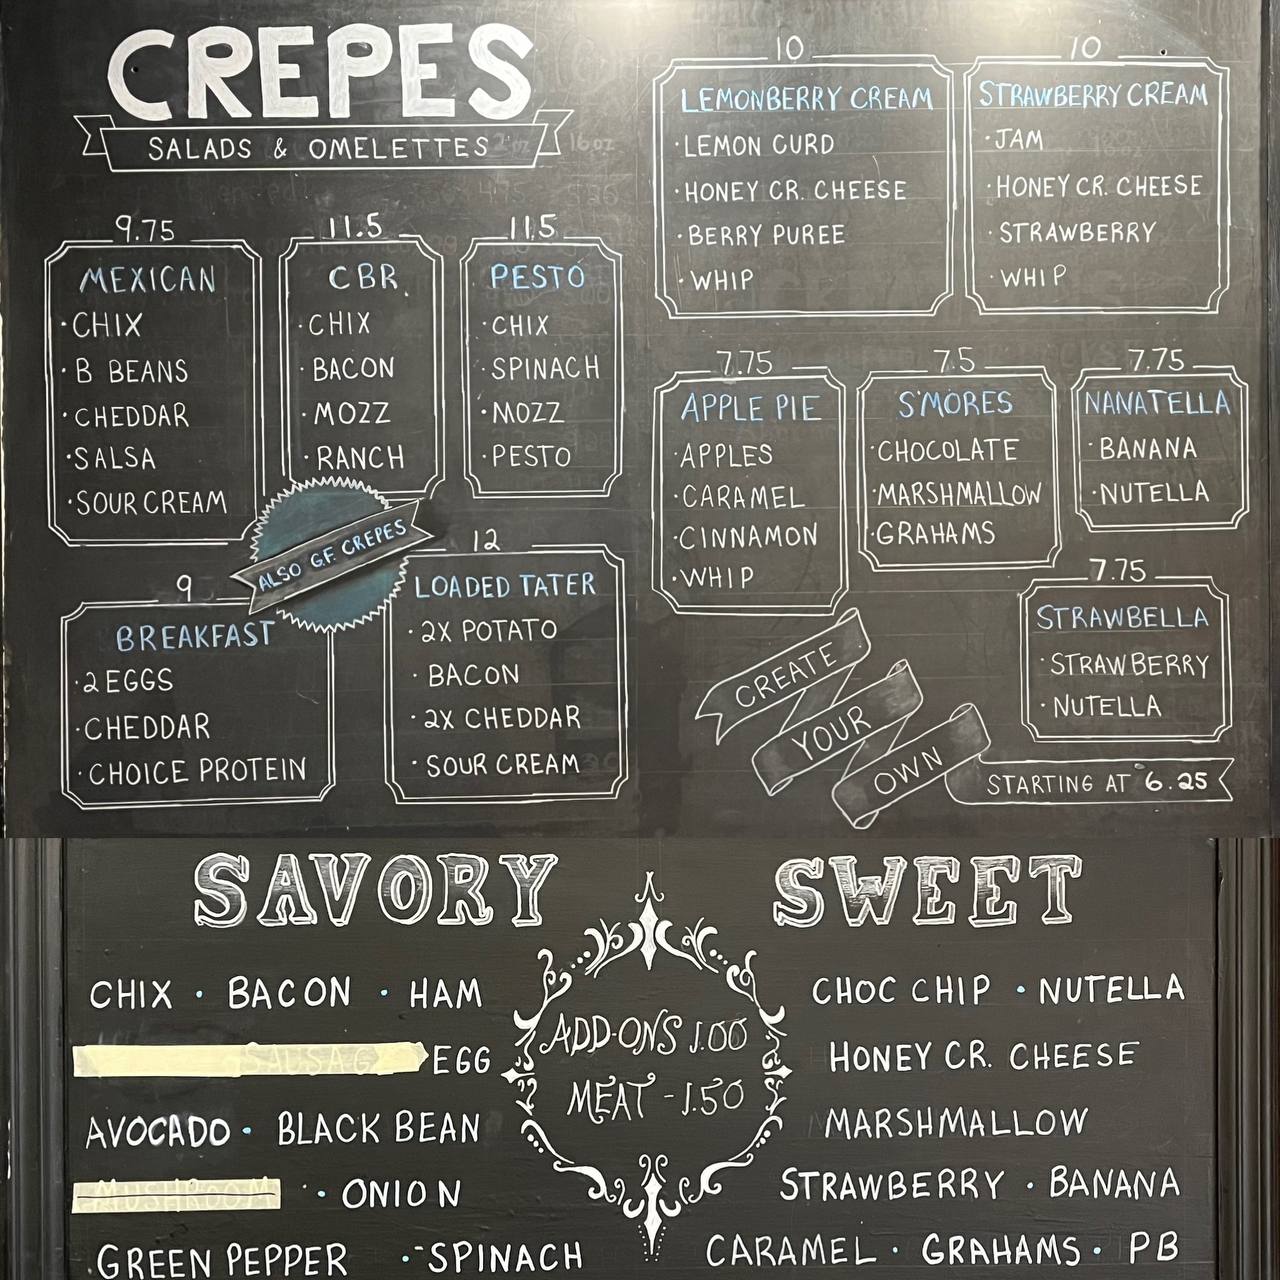 CREPES
SALADS & OMELETTES
9.75
MEXICAN
· CHIX
· B BEANS
· CHEDDAR
· SALSA
· SOUR CREAM
11.5
CBR
· CHIX
· BACON
· MOZZ
· RANCH
11.5
PESTO
· CHIX
· SPINACH
· MOZZ
· PESTO
ALSO G.F. CREPES
9
BREAKFAST
· 2 EGGS
· CHEDDAR
· CHOICE PROTEIN
12
LOADED TATER
· 2X POTATO
· BACON
· 2X CHEDDAR
· SOUR CREAM
10
LEMONBERRY CREAM
· LEMON CURD
· HONEY CR. CHEESE
· BERRY PUREE
· WHIP
10
STRAWBERRY CREAM
· JAM
· HONEY CR. CHEESE
· STRAWBERRY
· WHIP
7.75
APPLE PIE
· APPLES
· CARAMEL
· CINNAMON
· WHIP
7.5
S'MORES
· CHOCOLATE
· MARSHMALLOW
· GRAHAMS
7.75
NANATELLA
· BANANA
· NUTELLA
7.75
STRAWBELLA
· STRAWBERRY
· NUTELLA
CREATE
YOUR
OWN
STARTING AT 6.25
SAVORY
CHIX · BACON · HAM
SAUSAG EGG
AVOCADO · BLACK BEAN
MUSHROOM · ONION
GREEN PEPPER · SPINACH
ADD-ONS 1.00
MEAT - 1.50
SWEET
CHOC CHIP · NUTELLA
HONEY CR. CHEESE
MARSHMALLOW
STRAWBERRY · BANANA
CARAMEL · GRAHAMS · PB